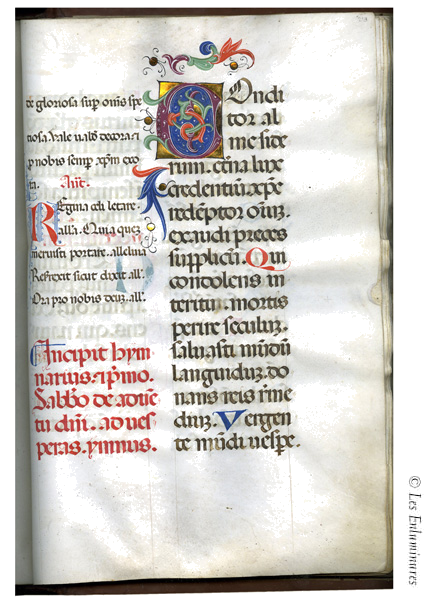 te gloriosa sup om̄is spe
tiosa. Vale valde decora ⁊
p nobis semp xp̄m exo
ra. An̄t.
Regina celi letare.
alla. Quia quez
meruisti portare. alleluia
Resrexit sicut dixit all'.
Ora pro nobis deuz. all'.
Incipit hym
narius. ⁊ p̄mo.
Sabb̄o de aduē
tu dn̄i. ad ues
peras. ymnus.
Condi
tor al
me side
rum. et̄na lux
credentiū xp̄e
redēptor om̄iuz.
exaudi preces
supplicū. Qui
condolens in
teritu. mortis
perire seculuz.
saluasti mūdū
languiduz. do
nans reis r̄me
diuz. Vergen
te mūdi uesp̄e.
© Les Enluminures